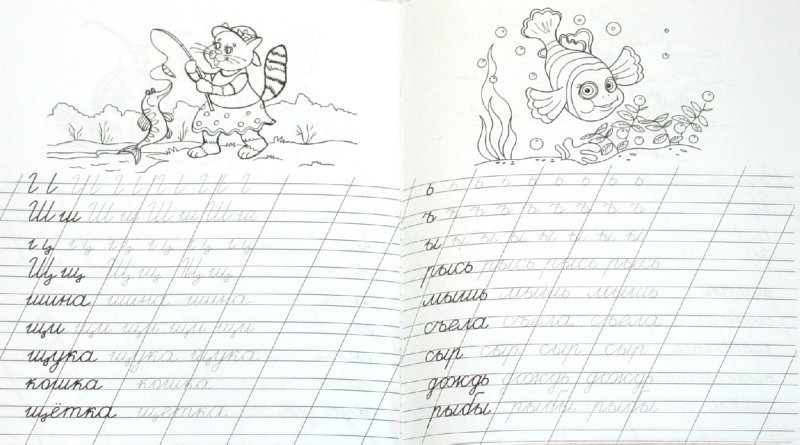 Ш ш Ш ш Ш ш Ш ш
Щ щ Щ щ Щ щ
шина шина шина
щи щи щи щи щи
щука щука щука
кошка кошка
щётка щётка
ь ь ь ь ь ь ь ь ь
ъ ъ ъ ъ ъ ъ ъ ъ ъ
ы ы ы ы ы ы ы ы
рысь рысь рысь рысь
мышь мышь мышь
съела съела съела
сыр сыр сыр сыр
дождь дождь дождь
рыбы рыбы рыбы